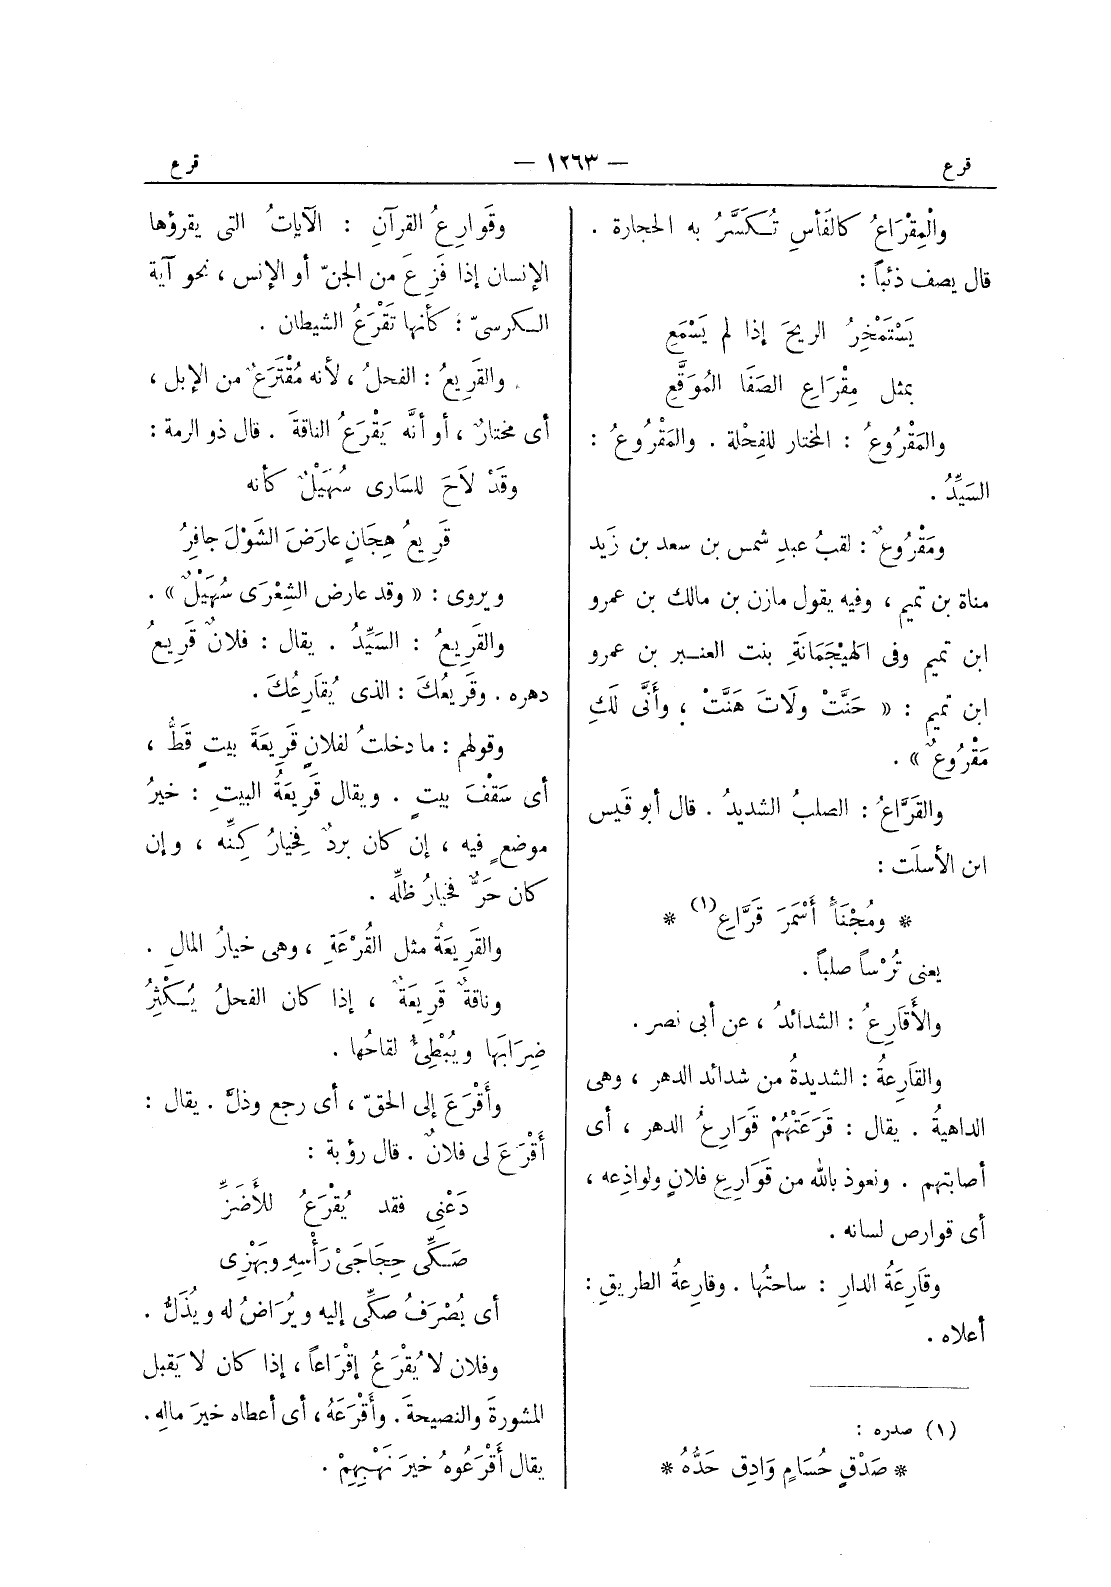 قرع
— ١٢٦٣ —
قرع
والْمِقْرَاعُ كالفَأسِ تُكَسَّرُ به الحجارة .
قال يصف ذئباً :
يَسْتَمْخِرُ الريحَ إذا لم يَسْمَعِ
بمثل مِقْرَاعِ الصَفَا المُوَقَّعِ
والمَقْرُوعُ : المختار للفِحْلة . والمَقْرُوعُ :
السَيِّدُ .
ومَقْرُوعٌ : لقبُ عبدِ شمس بن سعد بن زَيد
مناة بن تميم ، وفيه يقول مازن بن مالك بن عمرو
ابن تميم وفى الهَيْجُمَانَةِ بنت العنبر بن عمرو
ابن تميم : « حَنَّتْ ولَاتَ هَنَّتْ ، وأَنَّى لَكِ
مَقْرُوعٌ » .
والقَرَّاعُ : الصلبُ الشديدُ . قال أبو قَيس
ابن الأسلَت :
* ومُجْنَأٍ أَسْمَرَ قَرَّاعِ (١) *
يعنى تُرْساً صلباً .
والأَقَارِعُ : الشدائدُ ، عن أبى نصر .
والقَارِعةُ : الشديدةُ من شدائد الدهر ، وهى
الداهيةُ . يقال : قَرَعَتْهُمْ قَوَارِعُ الدهر ، أى
أصابتهم . ونعوذ بالله من قَوَارِعِ فلانٍ ولواذِعه ،
أى قوارص لسانه .
وقَارِعَةُ الدارِ : ساحتُها . وقارِعةُ الطريقِ :
أعلاه .
(١) صدره :
* صَدْقٍ حُسَامٍ وَادِقٍ حَدُّهُ *
وقَوارِعُ القرآنِ : الآياتُ التى يقرؤها
الإنسان إذا فَزِعَ من الجنّ أو الإنس ، نحو آية
الكرسىّ ؛ كأنها تَقْرَعُ الشيطان .
والقَرِيعُ : الفحلُ ، لأنه مُقْتَرَعٌ من الإبل ،
أى مختارٌ ، أو أنَّه يَقْرَعُ الناقةَ . قال ذو الرمة :
وقَدْ لاَحَ للسَارى سُهَيْلٌ كأنه
قَرِيعُ هِجَانٍ عارَضَ الشَوْلَ جافِرُ
ويروى : « وقد عارض الشِعْرَى سُهَيْلٌ » .
والقَرِيعُ : السَيِّدُ . يقال : فلانٌ قَرِيعُ
دهره . وقَرِيعُكَ : الذى يُقَارِعُكَ .
وقولهم : ما دخلتُ لفلانٍ قَرِيعَةَ بيتٍ قَطُّ ،
أى سَقْفَ بيتٍ . ويقال قَرِيعَةُ البيتِ : خيرُ
موضعٍ فيه ، إن كان بردٌ فِخيارُ كِنِّه ، وإن
كان حَرٌّ فخيارُ ظلِّه .
والقَرِيعَةُ مثل القُرْعَةِ ، وهى خيارُ المالِ .
وناقةٌ قَرِيعَةٌ ، إذا كان الفحلُ يُكْثِرُ
ضِرَابَها ويُبْطِئُ لقاحُها .
وأَقْرَعَ إلى الحقّ ، أى رجع وذلَّ . يقال :
أَقْرَعَ لى فلانٌ . قال رؤبة :
دَعْنِى فقد يُقْرَعُ للأَضَزِّ
صَكِّى حِجَاجَىْ رَأْسِهِ وبَهْزِى
أى يُصْرَفُ صكِّى إليه ويُرَاضُ له ويُذَلُّ .
وفلان لا يُقْرَعُ إقْرَاعاً ، إذا كان لا يَقبل
المشورةَ والنصيحةَ . وأَقْرَعَهُ ، أى أعطاه خيرَ مالِهِ .
يقال أَقْرَعُوهُ خيرَ نَهْبِهِمْ .